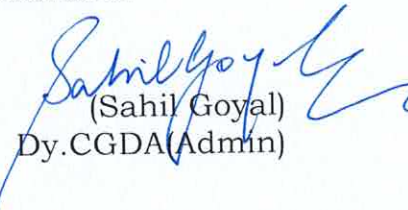 Sahil Goyal
(Sahil Goyal)
Dy.CGDA(Admin)